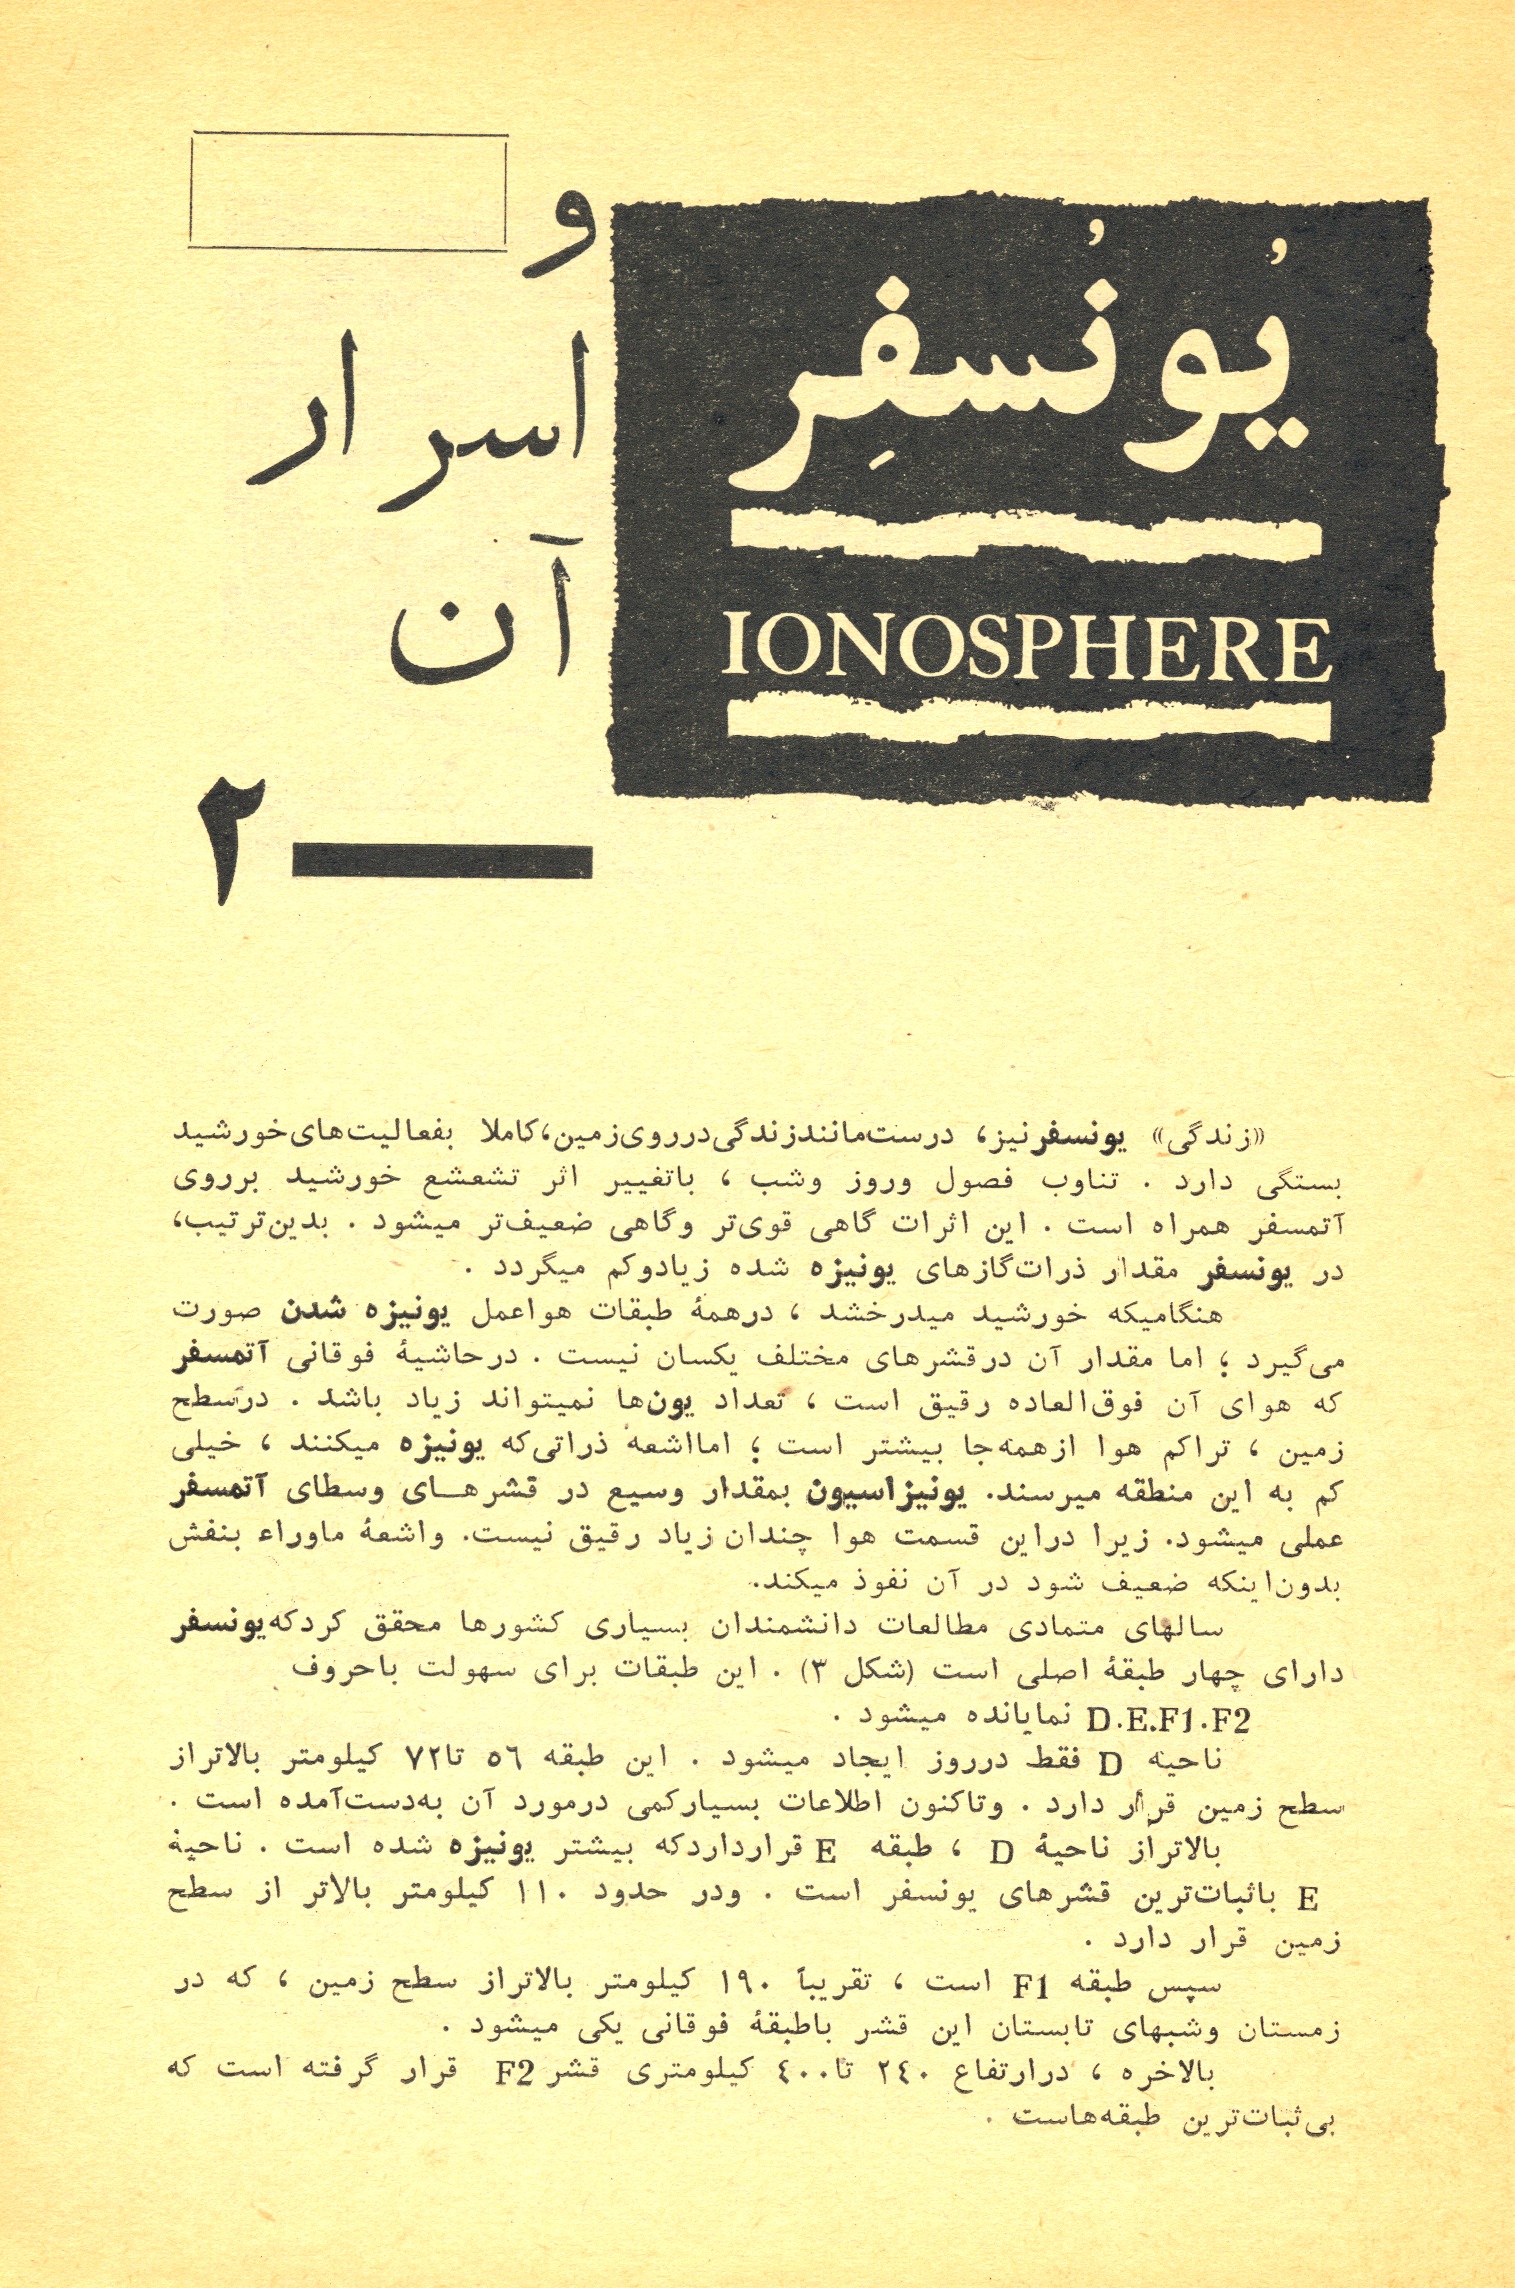 یُونُسفِر
IONOSPHERE
و
اسرار
آن
— ۲
«زندگی» یونسفر نیز، درست‌مانند زندگی در روی زمین، کاملا بفعالیت‌های خورشید
بستگی دارد . تناوب فصول وروز وشب ، باتغییر اثر تشعشع خورشید برروی
آتمسفر همراه است . این اثرات گاهی قوی‌تر وگاهی ضعیف‌تر میشود . بدین‌ترتیب،
در یونسفر مقدار ذرات‌گازهای یونیزه شده زیادوکم میگردد .
هنگامیکه خورشید میدرخشد ، درهمهٔ طبقات هواعمل یونیزه شدن صورت
می‌گیرد ؛ اما مقدار آن درقشرهای مختلف یکسان نیست . درحاشیهٔ فوقانی آتمسفر
که هوای آن فوق‌العاده رقیق است ، تعداد یون‌ها نمیتواند زیاد باشد . درسطح
زمین ، تراکم هوا ازهمه‌جا بیشتر است ؛ امااشعه ذراتی‌که یونیزه میکنند ، خیلی
کم به این منطقه میرسند. یونیزاسیون بمقدار وسیع در قشرهــای وسطای آتمسفر
عملی میشود. زیرا دراین قسمت هوا چندان زیاد رقیق نیست. واشعهٔ ماوراء بنفش
بدون‌اینکه ضعیف شود در آن نفوذ میکند.
سالهای متمادی مطالعات دانشمندان بسیاری کشورها محقق کردکه یونسفر
دارای چهار طبقهٔ اصلی است (شکل ۳) . این طبقات برای سهولت باحروف
D.E.F1.F2 نمایانده میشود .
ناحیه D فقط درروز ایجاد میشود . این طبقه ۵۶ تا۷۲ کیلومتر بالاتراز
سطح زمین قرار دارد . وتاکنون اطلاعات بسیارکمی درمورد آن به‌دست‌آمده است .
بالاتراز ناحیهٔ D ، طبقه E قرارداردکه بیشتر یونیزه شده است . ناحیهٔ
E باثبات‌ترین قشرهای یونسفر است . ودر حدود ۱۱۰ کیلومتر بالاتر از سطح
زمین قرار دارد .
سپس طبقه F1 است ، تقریباً ۱۹۰ کیلومتر بالاتراز سطح زمین ، که در
زمستان وشبهای تابستان این قشر باطبقهٔ فوقانی یکی میشود .
بالاخره ، درارتفاع ۲۴۰ تا۴۰۰ کیلومتری قشر F2 قرار گرفته است که
بی‌ثبات‌ترین طبقه‌هاست .